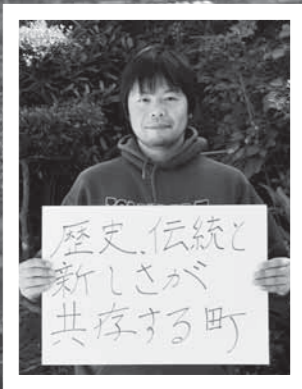 歴史、伝統と
新しさが
共存する町